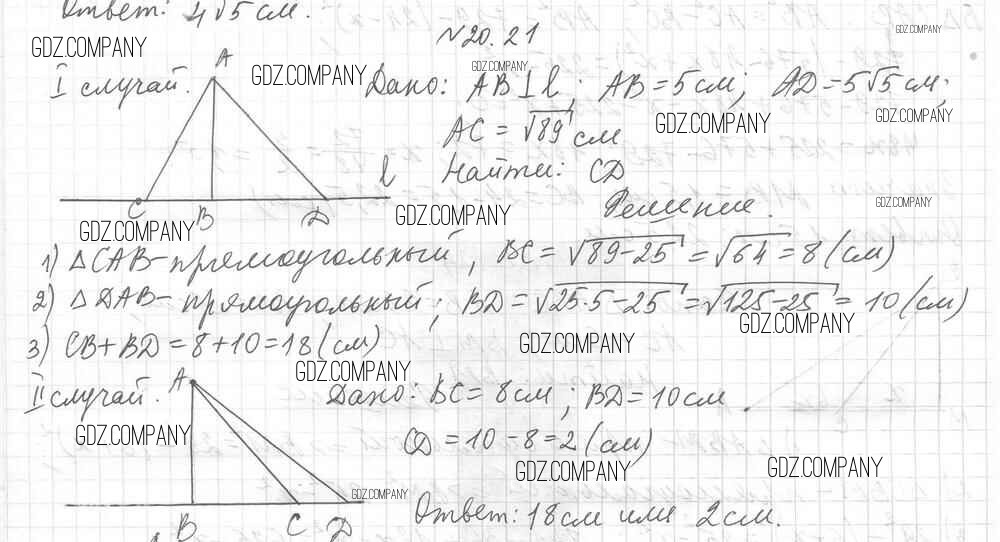 Ответ: 4√5 см.
№20.21
GDZ.COMPANY
GDZ.COMPANY
A
I случай.
GDZ.COMPANY
GDZ.COMPANY
Дано: AB⊥l; AB=5см; AD=5√5 см;
AC=√89 см
GDZ.COMPANY
GDZ.COMPANY
Найти: CD
l
C B D
GDZ.COMPANY
GDZ.COMPANY
GDZ.COMPANY
Решение.
1) △CAB-прямоугольный, BC=√89-25=√64=8(см)
2) △DAB-прямоугольный; BD=√25·5-25=√125-25=10(см)
GDZ.COMPANY
3) CB+BD=8+10=18(см)
GDZ.COMPANY
GDZ.COMPANY
II случай.
A
Дано: BC=8см; BD=10см.
GDZ.COMPANY
CD=10-8=2(см)
GDZ.COMPANY
GDZ.COMPANY
GDZ.COMPANY
B C D
Ответ: 18см или 2см.